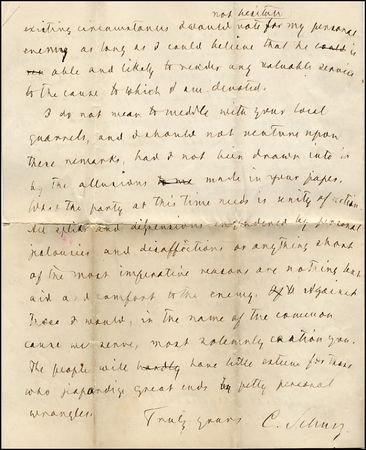 not hesitate
existing circumstances I would vote for my personal
enemy as long as I could believe that he could is
able and likely to render any valuable service
to the cause to which I am devoted.
I do not mean to meddle with your local
quarrels, and I should not venture upon
these remarks, had I not been drawn into it
by the allusions to me made in your paper.
What the party at this time needs is unity of action.
All splits and dissensions engendered by personal
jealousies and disaffections or anything short
of the most imperative reasons are nothing but
aid and comfort to the enemy. Against
these I would, in the name of the common
cause we serve, most solemnly caution you.
The people will hardly have little esteem for those
who jeopardize great ends by petty personal
wrangles.
Truly yours C. Schurz